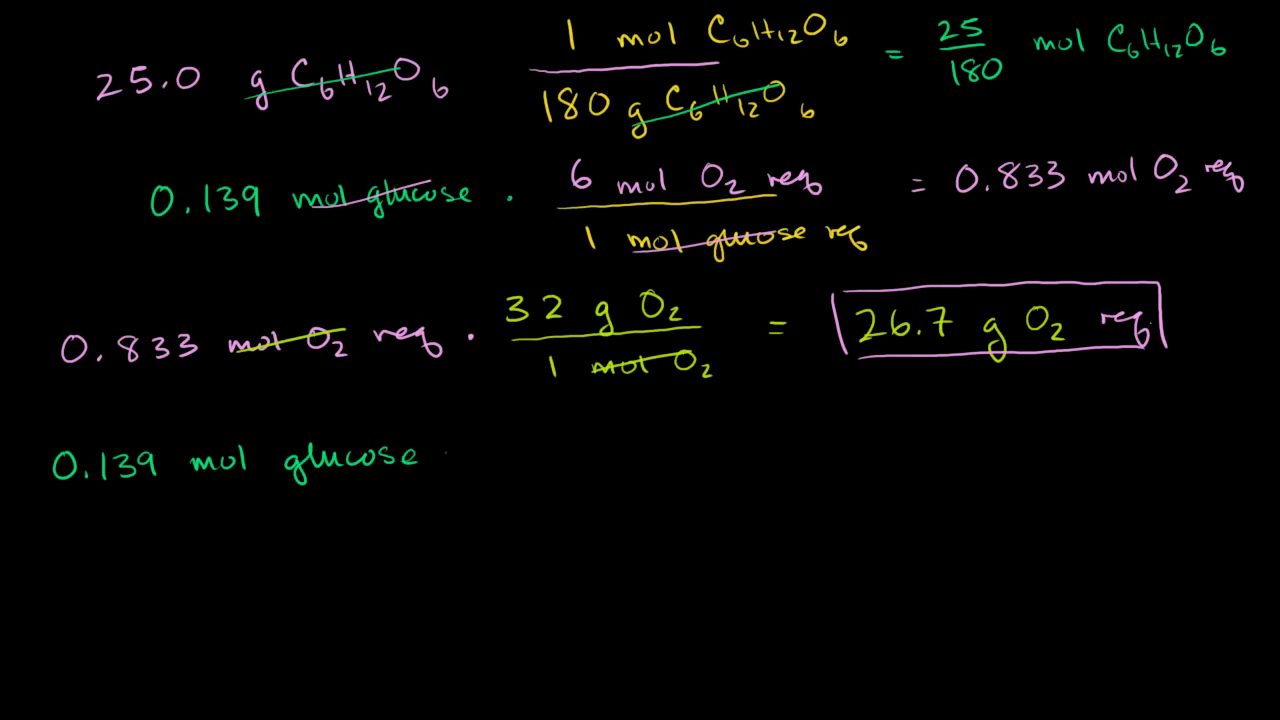 25.0 g C₆H₁₂O₆ 1 mol C₆H₁₂O₆ / 180 g C₆H₁₂O₆ = 25/180 mol C₆H₁₂O₆
0.139 mol glucose · 6 mol O₂ req / 1 mol glucose req = 0.833 mol O₂ req
0.833 mol O₂ req · 32 g O₂ / 1 mol O₂ = 26.7 g O₂ req
0.139 mol glucose